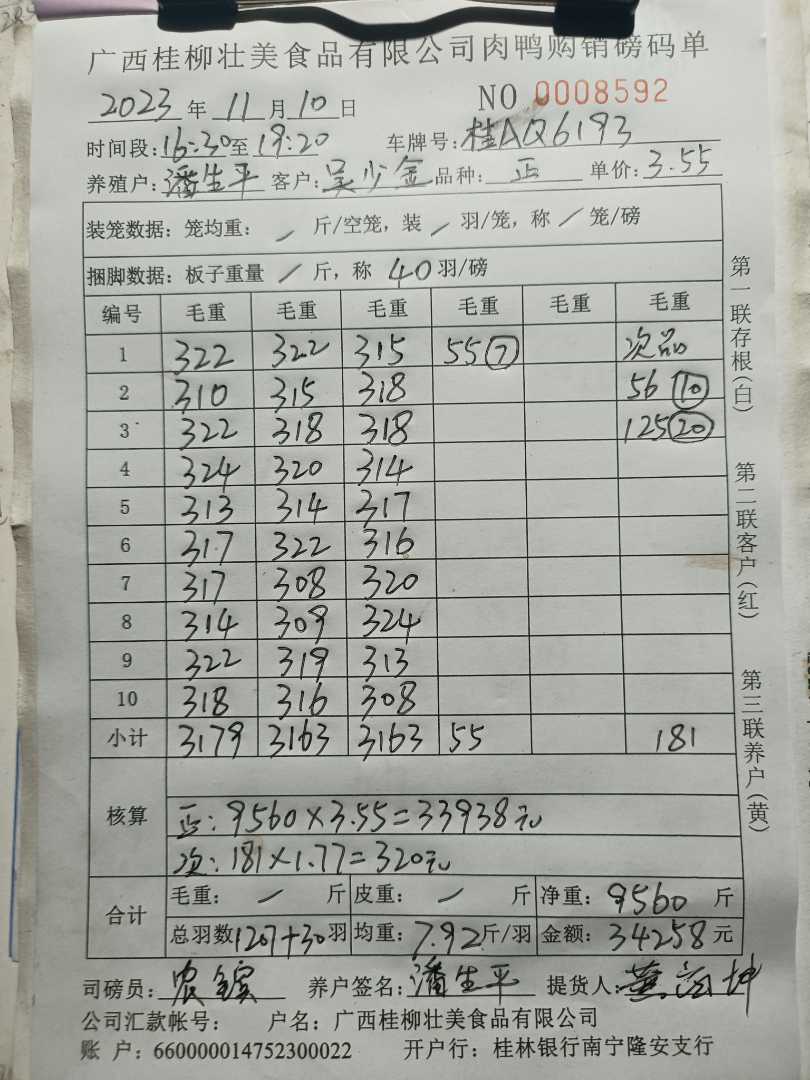 广西桂柳壮美食品有限公司肉鸭购销磅码单
2023年11月10日 NO 0008592
时间段:16:30至19:20 车牌号:桂AQ6193
养殖户:潘生平 客户:吴少金 品种:正 单价:3.55
装笼数据:笼均重: / 斤/空笼,装 / 羽/笼,称 / 笼/磅
捆脚数据:板子重量 / 斤,称 40 羽/磅
编号 毛重 毛重 毛重 毛重 毛重 毛重
1 322 322 315 55⑦ 次品
2 310 315 318 56⑩
3 322 318 318 125⑳
4 324 320 314
5 313 314 317
6 317 322 316
7 317 308 320
8 314 309 324
9 322 319 313
10 318 316 308
小计 3179 3163 3163 55 181
核算
正:9560×3.55=33938元
次:181×1.77=320元
合计
毛重: / 斤 皮重: / 斤 净重:9560斤
总羽数1207+30羽 均重:7.92斤/羽 金额:34258元
司磅员: 养户签名:潘生平 提货人:
公司汇款帐号: 户名:广西桂柳壮美食品有限公司
账 户:660000014752300022 开户行:桂林银行南宁隆安支行
第一联存根(白) 第二联客户(红) 第三联养户(黄)